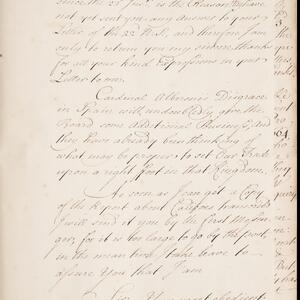 since the 25 Inst. is the Reason We have
not yet sent you any Answer to your
Letter of the 22 and therefore I am
only to return you my sincere thanks
for all your kind Expressions in your
Letter to me.
Cardinal Alberoni's Disgrace
in Spain will undoubtedly give the
Board some Additional Business, And
they have already been thinking of
what may be proper to set Our Trade
upon a right foot in that Kingdom.
As soon as I can get a Copy
of the Report about transcrib'd
I will send it you by the first Messen
ger, for it is too large to go by the post,
in the mean time I take leave to
assure You that I am
Sir Your most obedient